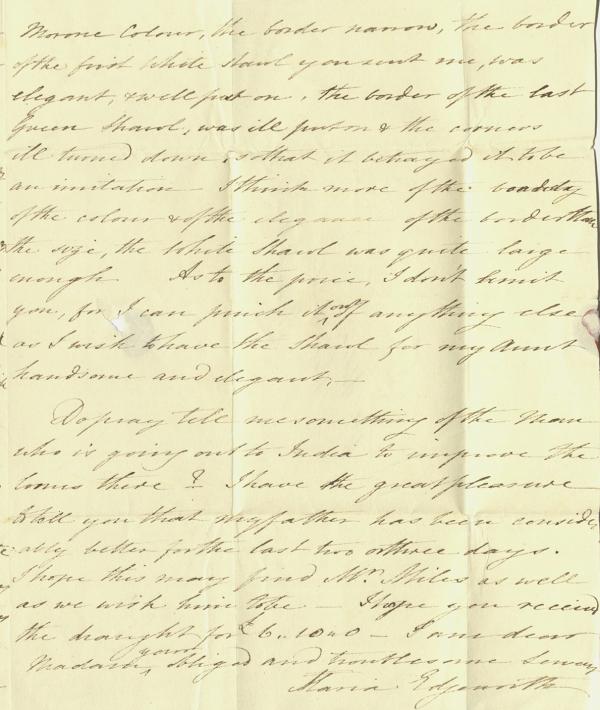 Morone Colour, the border narrow, the border
of the first White Shawl you sent me, was
elegant, & well put on. the border of the last
Green Shawl, was ill put on & the corners
ill turned down, so that it betrayed it to be
an imitation – I think more of the
of the colour & of the elegance of the border than
the size, the White Shawl was quite large
enough As to the price, I don't limit
you, for I can pinch it out of anything else
as I wish to have the Shawl for my Aunt
handsome and elegant, –
Do pray tell me something of the Man
who is going out to India to improve the
looms there? I have the great pleasure
to tell you that my father has been consider
ably better for the last two or three days.
I hope this may find Mr. Miles as well
as we wish him to be – I hope you received
the draught for £ 6.. 10 .. 0 – I am dear
Madam, your obliged and troublesome
Maria Edgeworth